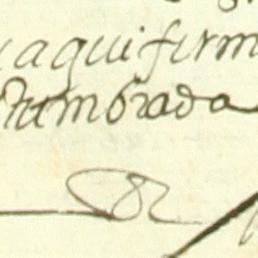 y aqui firm
stumbrada